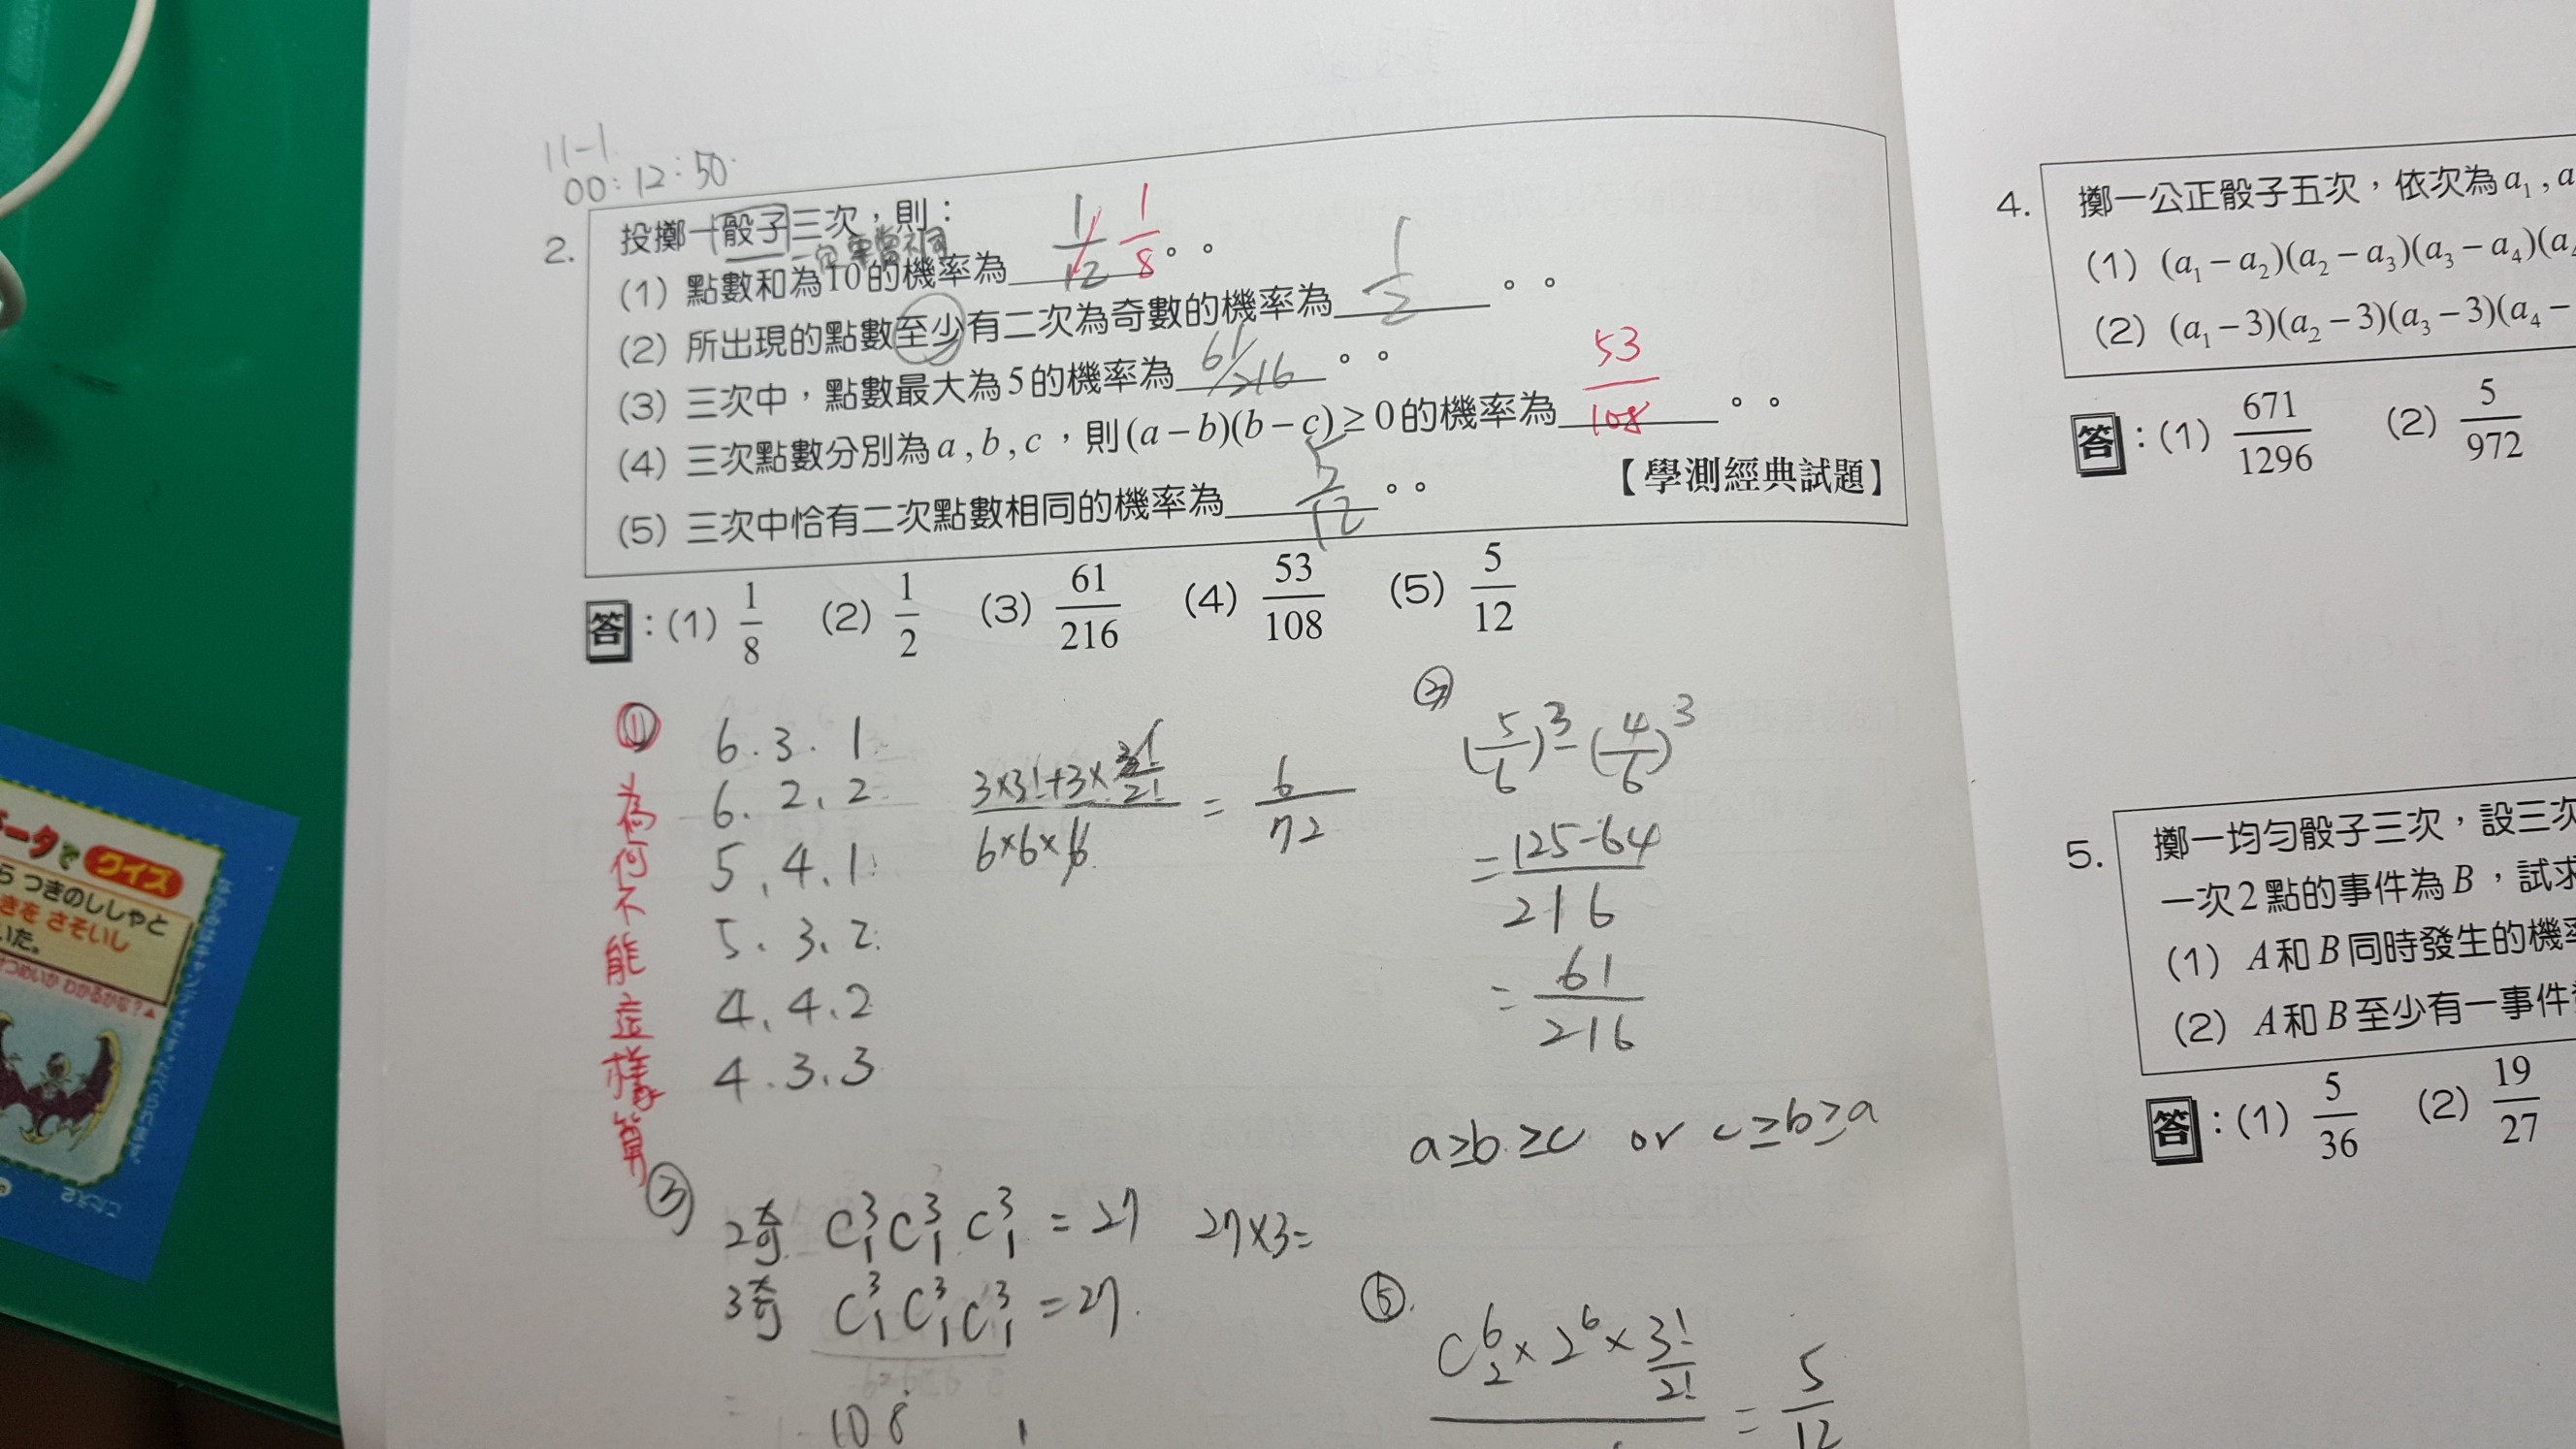 11-1
00:12:50
2. 投擲一骰子三次，則：
(1) 點數和為10的機率為 1/12 1/8 。。
(2) 所出現的點數至少有二次為奇數的機率為 1/2 。。
(3) 三次中，點數最大為5的機率為 61/216 。。
(4) 三次點數分別為a,b,c，則(a−b)(b−c)≥0的機率為 53/108 。。
(5) 三次中恰有二次點數相同的機率為 5/12 。。
【學測經典試題】
答：(1) 1/8 (2) 1/2 (3) 61/216 (4) 53/108 (5) 5/12
①
為何不能這樣算
6.3.1
6.2.2
5.4.1
5.3.2
4.4.2
4.3.3
(3×3!+3×3!/2!)/(6×6×6) = 6/72
(5/6)³−(4/6)³
= (125-64)/216
= 61/216
a≥b≥c or c≥b≥a
③
2奇 C³₁C³₁C³₁ = 27 27×3=
3奇 C³₁C³₁C³₁ = 27
108
⑤
C⁶₂×2⁶×3!/2! = 5/12
4. 擲一公正骰子五次，依次為a₁,a
(1) (a₁−a₂)(a₂−a₃)(a₃−a₄)(a
(2) (a₁−3)(a₂−3)(a₃−3)(a₄−
答：(1) 671/1296 (2) 5/972
5. 擲一均勻骰子三次，設三次
一次2點的事件為B，試求
(1) A和B同時發生的機率
(2) A和B至少有一事件
答：(1) 5/36 (2) 19/27
クイズ
つきのししゃと
きを さそいし
いた。